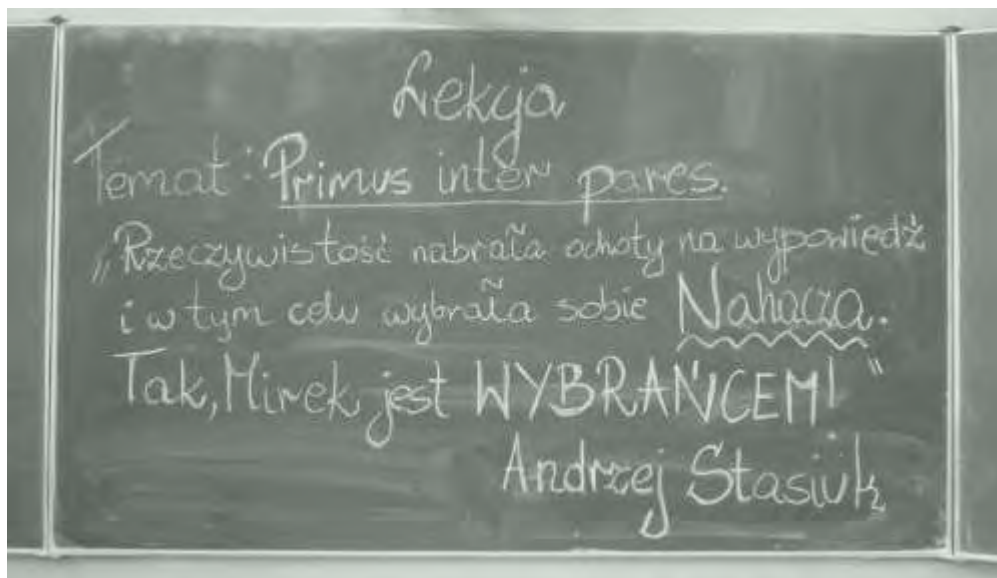 Lekcja
Temat: Primus inter pares.
„Rzeczywistość nabrała ochoty na wypowiedź
i w tym celu wybrała sobie Nahacza.
Tak, Mirek jest WYBRAŃCEM!”
Andrzej Stasiuk